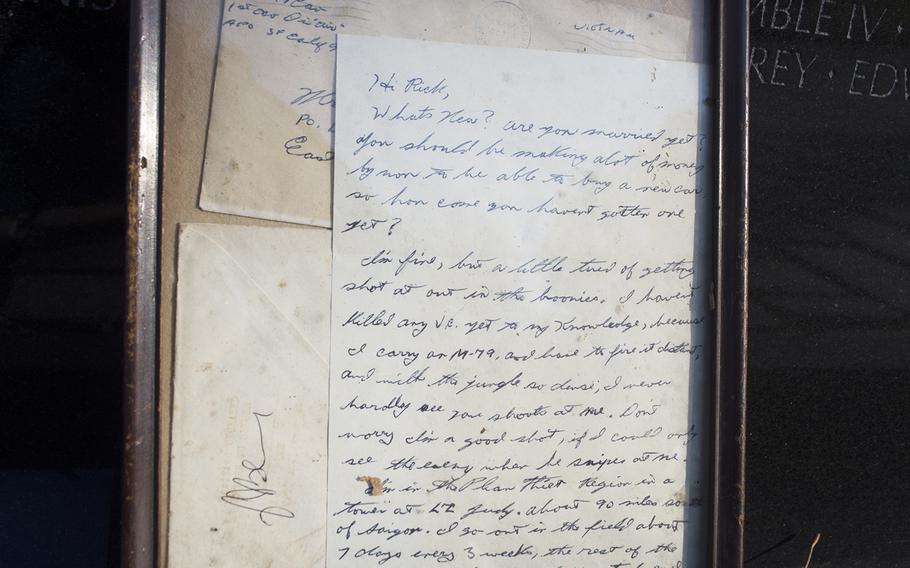 1st Cav Division
APO SF Calif
VIETNAM
PO.
East
MBLE IV ·
REY · EDW
Hi Rick,
Whats New? are you married yet?
You should be making alot of money
by now to be able to buy a new car
so how come you havent gotten one
yet?
I'm fine, but a little tired of getting
shot at out in the boonies. I havent
killed any V.C. yet to my knowledge, because
I carry an M-79, and have to fire it distant,
and with the jungle so dense, I never
hardly see
shoots at me. Dont
worry I'm a good shot, if I could only
see the enemy when he snipes at me.
I'm in the Phan Thiet Region in a
tower at LZ Judy. about 90 miles south
of Saigon. I go out in the field about
7 days every 3 weeks, the rest of the